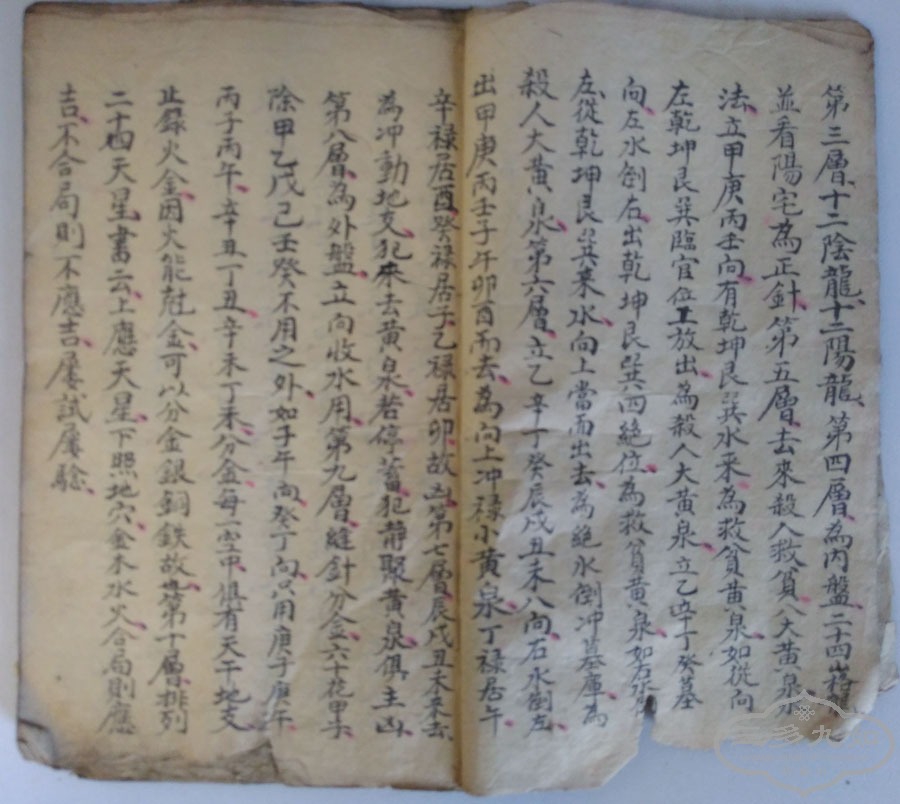 第三層十二陰龍十二陽龍第四層為內盤二十四山
並看陽宅為正針第五層去來殺人救貧八大黃泉水
法立甲庚丙壬向有乾坤艮巽水來為救貧黃泉如從向
左乾坤艮巽臨官位上放出為殺人大黃泉立乙辛丁癸墓
向左水倒右出乾坤艮巽四絕位為救貧黃泉如右水
左從乾坤艮巽來水向上當面出去為絕水倒冲墓庫為
殺人大黃泉水第六層立乙辛丁癸辰戌丑未八向右水倒左
出甲庚丙壬子午卯酉而去為向上冲祿小黃泉丁祿居午
辛祿居酉癸祿居子乙祿居卯故凶第七層辰戌丑未來去
為冲動地支犯來去黃泉若停蓄犯靜聚黃泉俱主凶
第八層為外盤立向收水用第九層縫針分金六十花甲子
除甲乙戊己壬癸不用之外如子午向癸丁向只用庚子庚午
丙子丙午辛丑丁丑辛未丁未分金每一空中俱有天干地支
止錄火金因火能尅金可以分金銀銅鉄故也第十層排列
二十四天星書云上應天星下照地穴金木水火合局則應
吉不合局則不應吉屢試屢驗